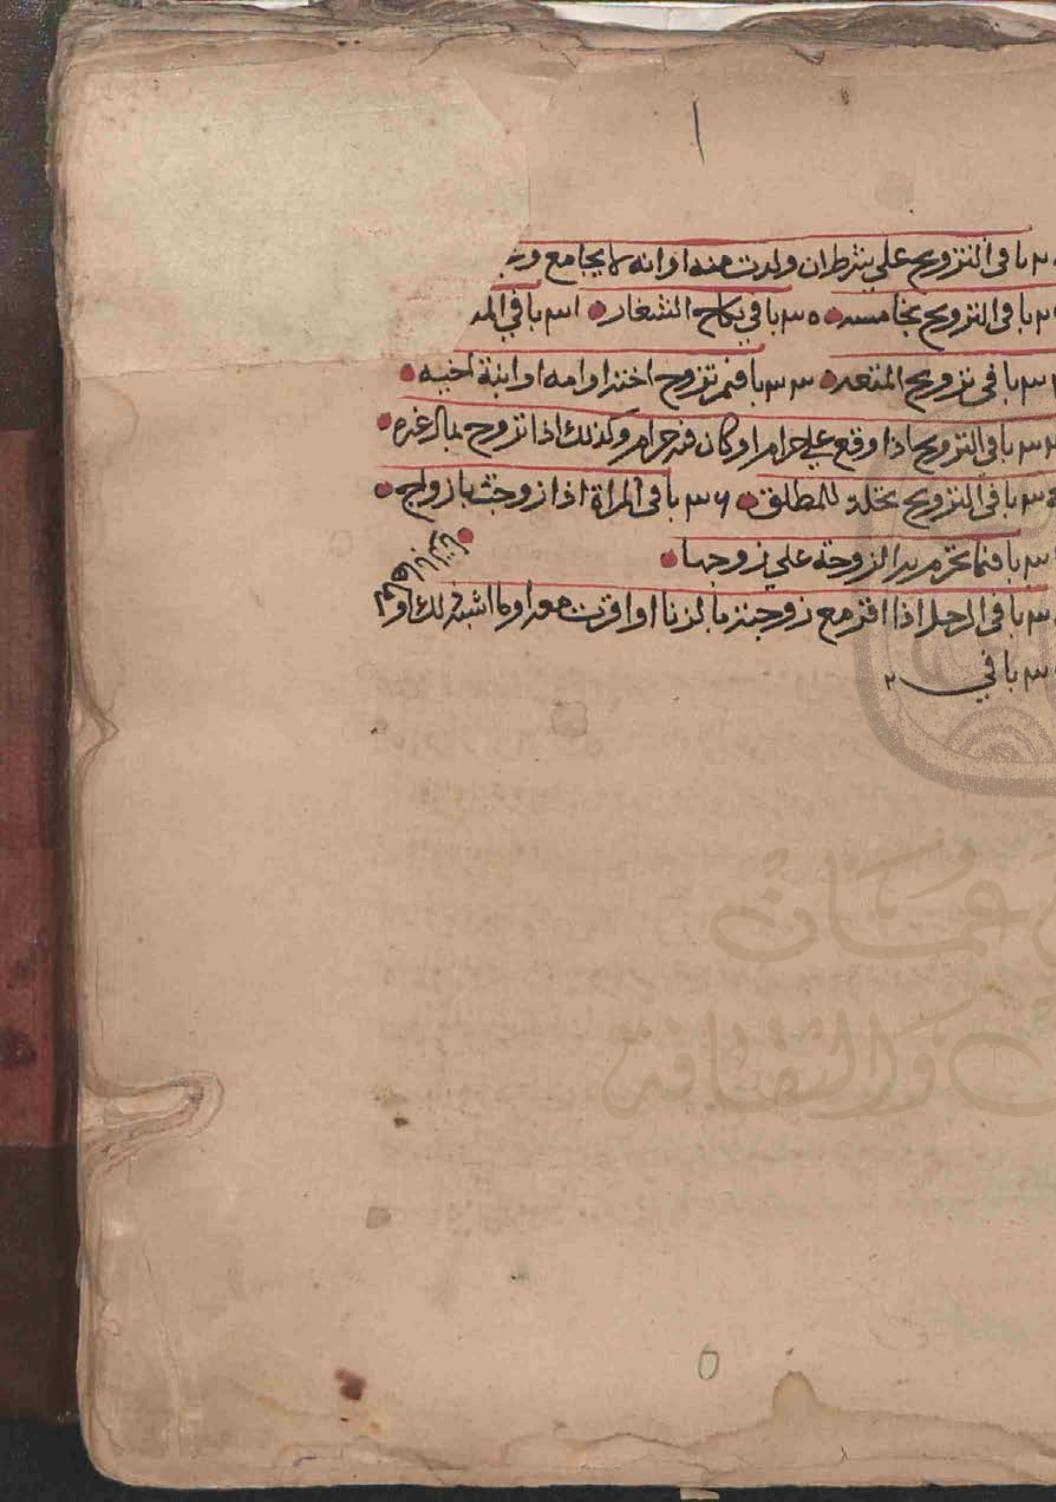 ١
باب في التزويج على شرط ان ولدت منه او انه لا يجامع
باب في التزويج بخامسة ٣٥ باب في نكاح الشغار ٣١ باب في
باب في تزويج المتعه ٣٣ باب فيمن تزوج اخته او امه او ابنة اخيه
باب في التزويج اذا وقع على حرام او كان فيه حرام وكذلك اذا تزوج بمال غيره
باب في التزويج تحله للمطلق ٣٦ باب في المراة اذا زوجت بازواج
باب فيما تحرم به الزوجة على زوجها
باب في الرجل اذا اقر مع زوجته بالزنا او اقرت معه او ما اشبه ذلك
باب في
عمان
والثقافة
٥